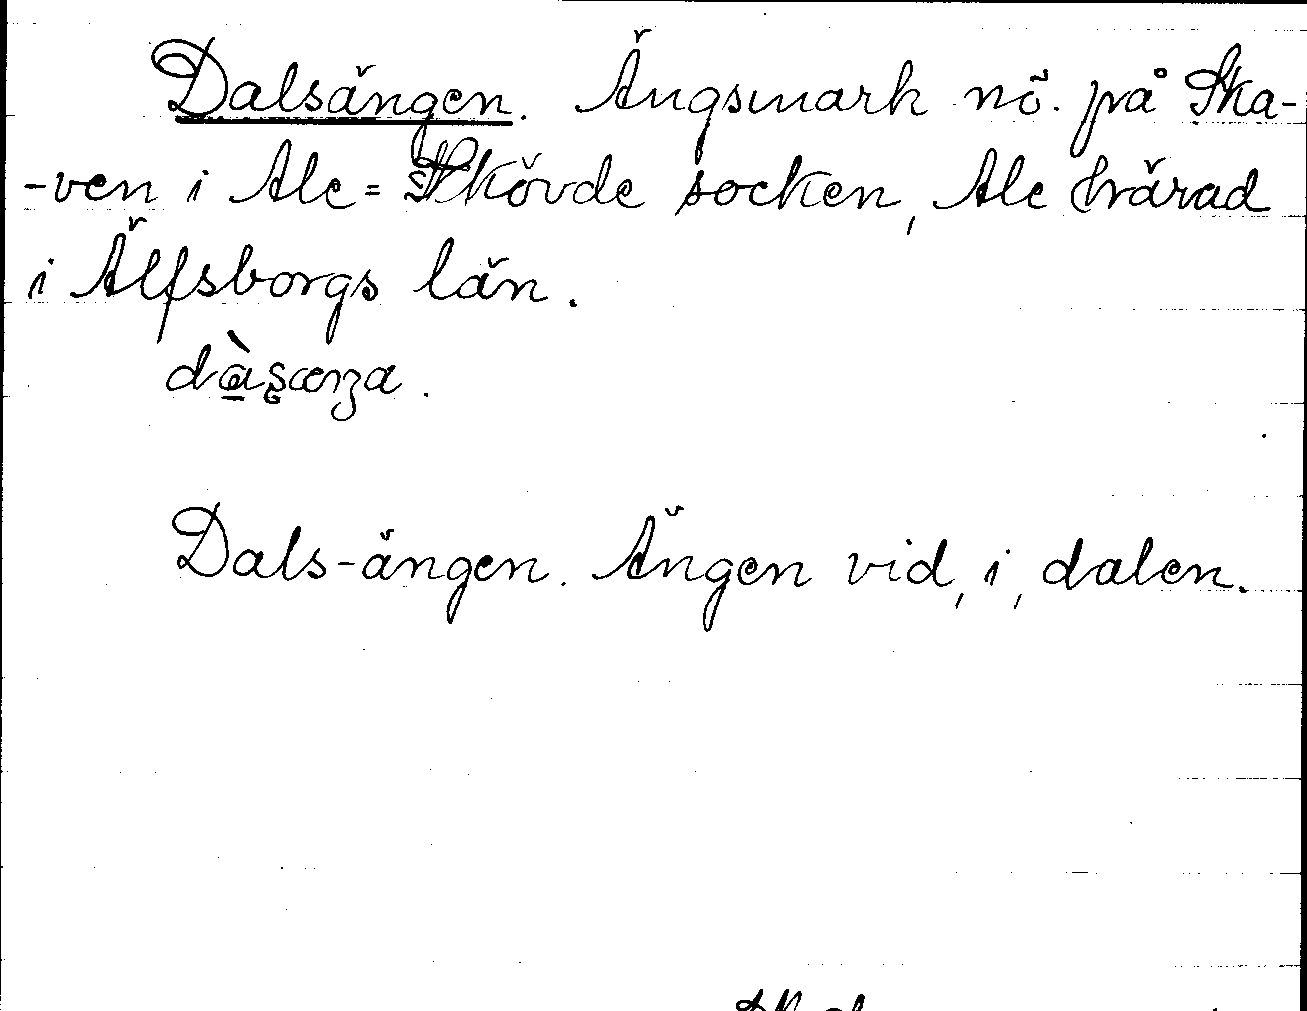 Dalsängen. Ängsmark nö. på Ska-
-ven i Ale=Skövde socken, Ale härad
i Älfsborgs län.
dàsænga.
Dals-ängen. Ängen vid, i, dalen.